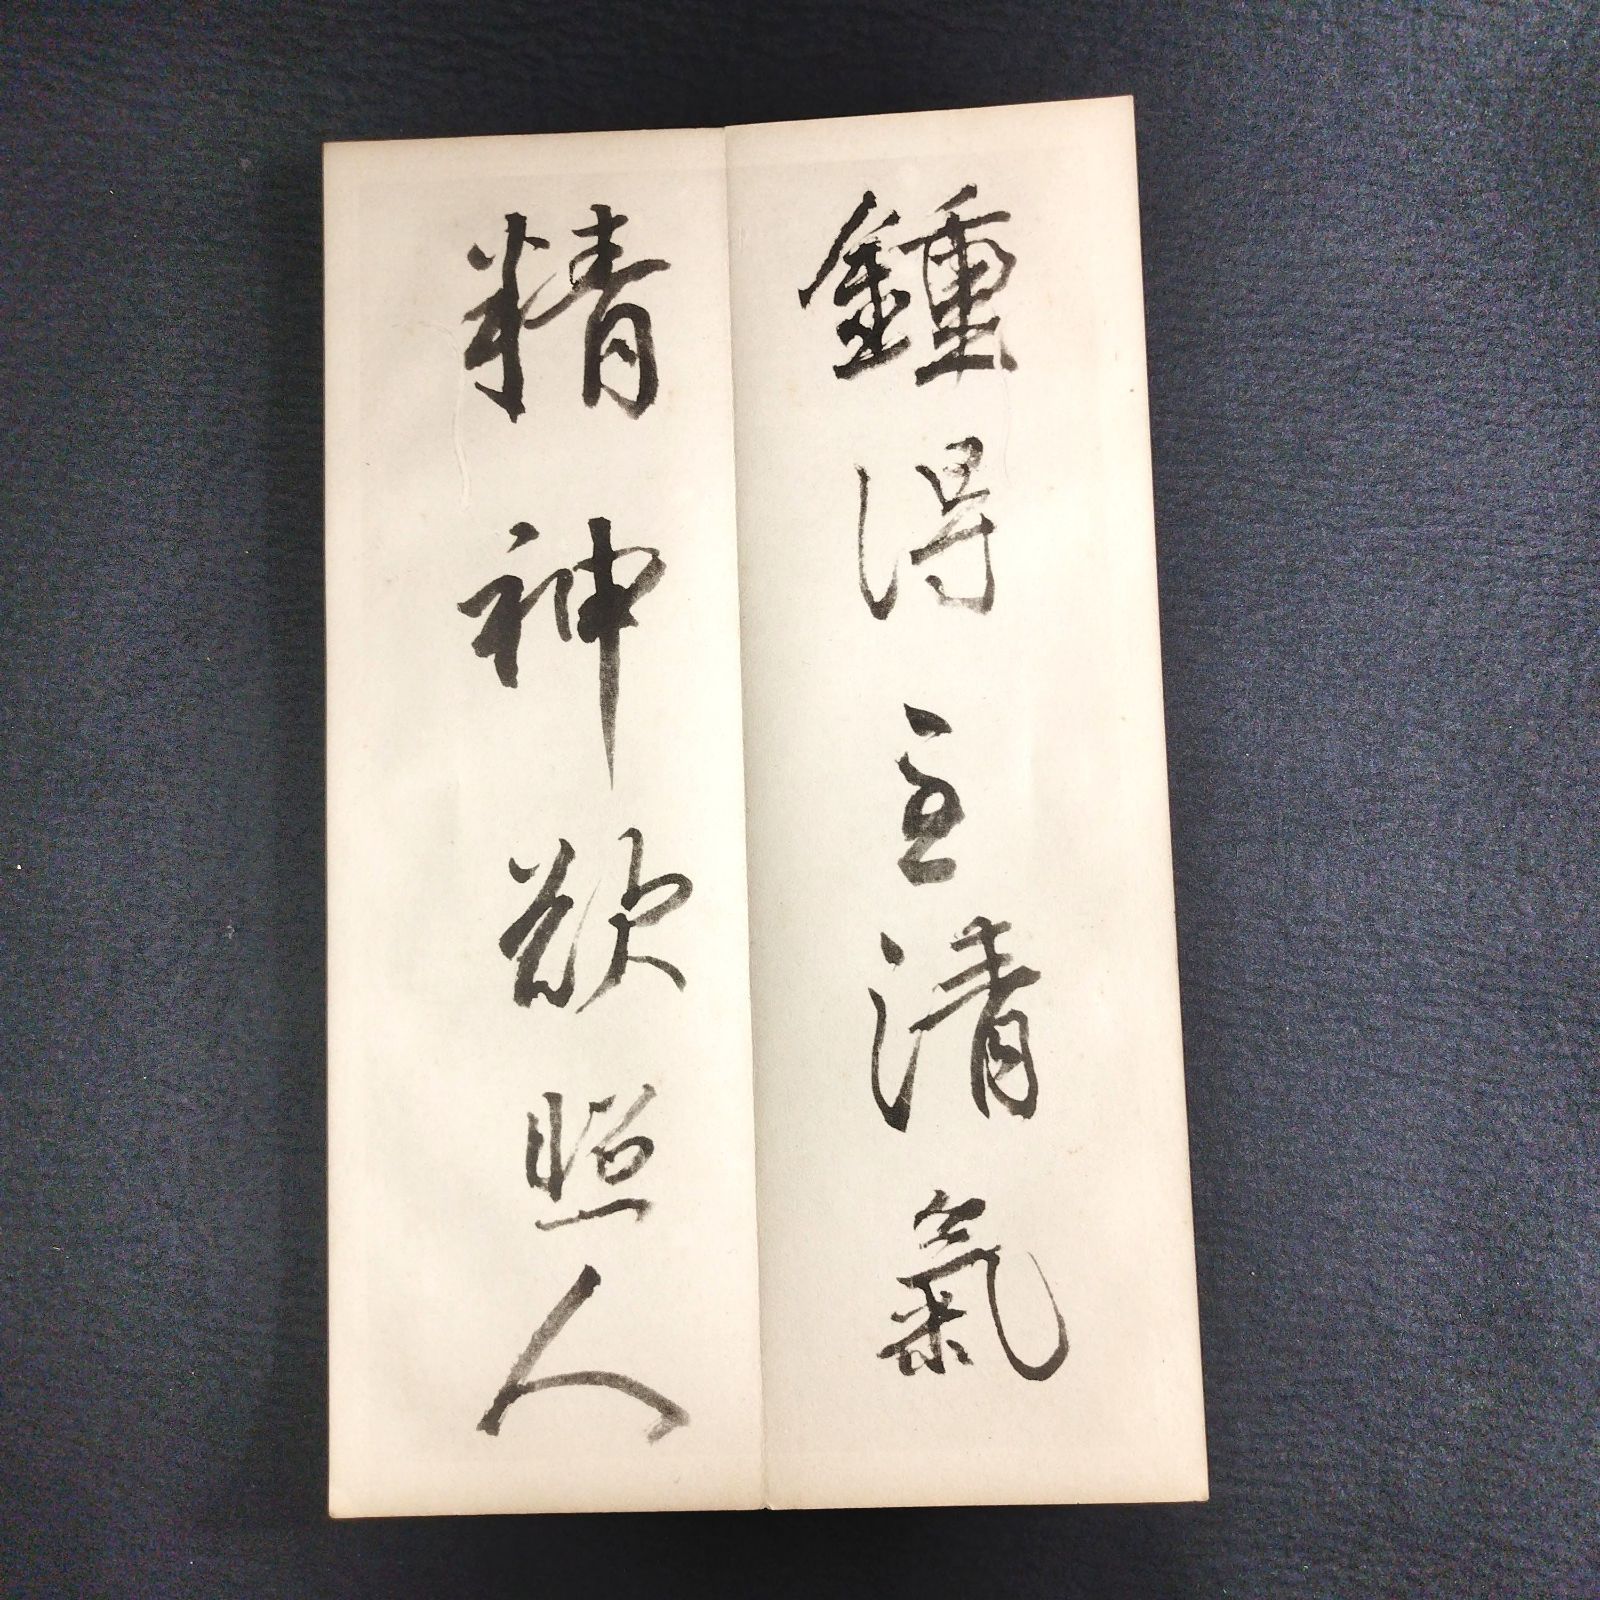 鍾得主清氣
精神欲照人